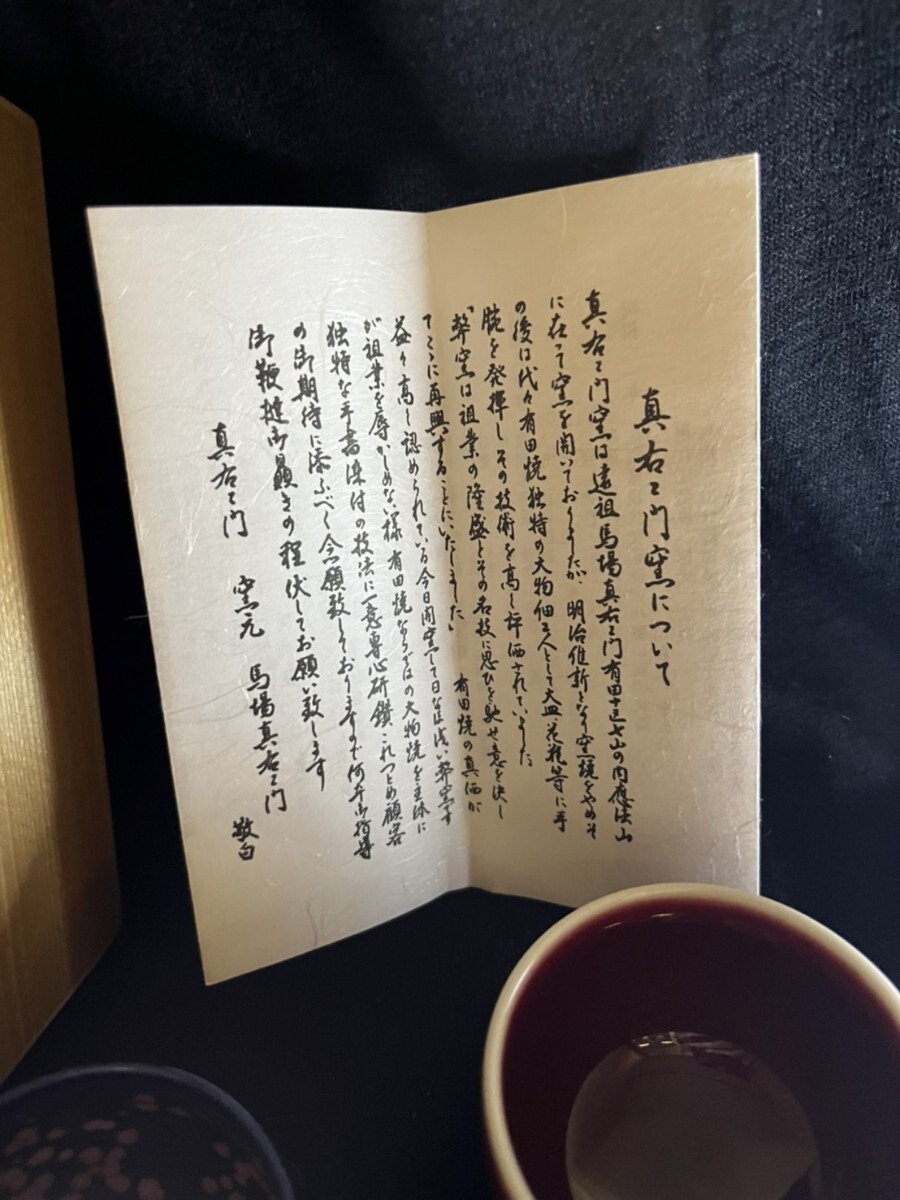 真右ヱ門窯について
真右ヱ門窯は遠祖馬場真右ヱ門有田十三山の内應法山
に在て窯を開いておりましたが、明治維新となり窯焼をやめそ
の後は代々有田焼独特の大物細工人として大皿、花瓶等に手
腕を発揮しその技術を高く評価されていました
「弊窯は祖業の隆盛とその名技に思ひを馳せ意を決し
てここに再興することにいたしました」 有田焼の真価が
益々高く認められている今日開窯して日なほ浅い弊窯です
が祖業を辱かしめない様有田焼ならではの大物焼を主体に
独特な手書染付の技法に一意専心研鑽これつとめ顧客
の御期待に添ふべく念願致しておりますので何卒御指導
御鞭撻御贔きの程伏してお願い致します
真右ヱ門 窯元 馬場真右ヱ門 敬白